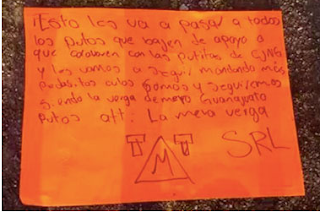 ¡Esto les va a pasar a todos
los putos que bajen de apoyo a
que colaboren con las putitas de CJNG
y les vamos a seguir montando más
pedasitos culos somos y seguiremos
siendo la verga de mayo Guanajuato
Putos att: La mera verga
SRL
T M T